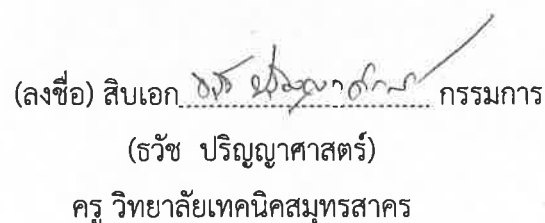 (ลงชื่อ) สิบเอก ธวัช ปริญญาศาสตร์ กรรมการ
(ธวัช ปริญญาศาสตร์)
ครู วิทยาลัยเทคนิคสมุทรสาคร